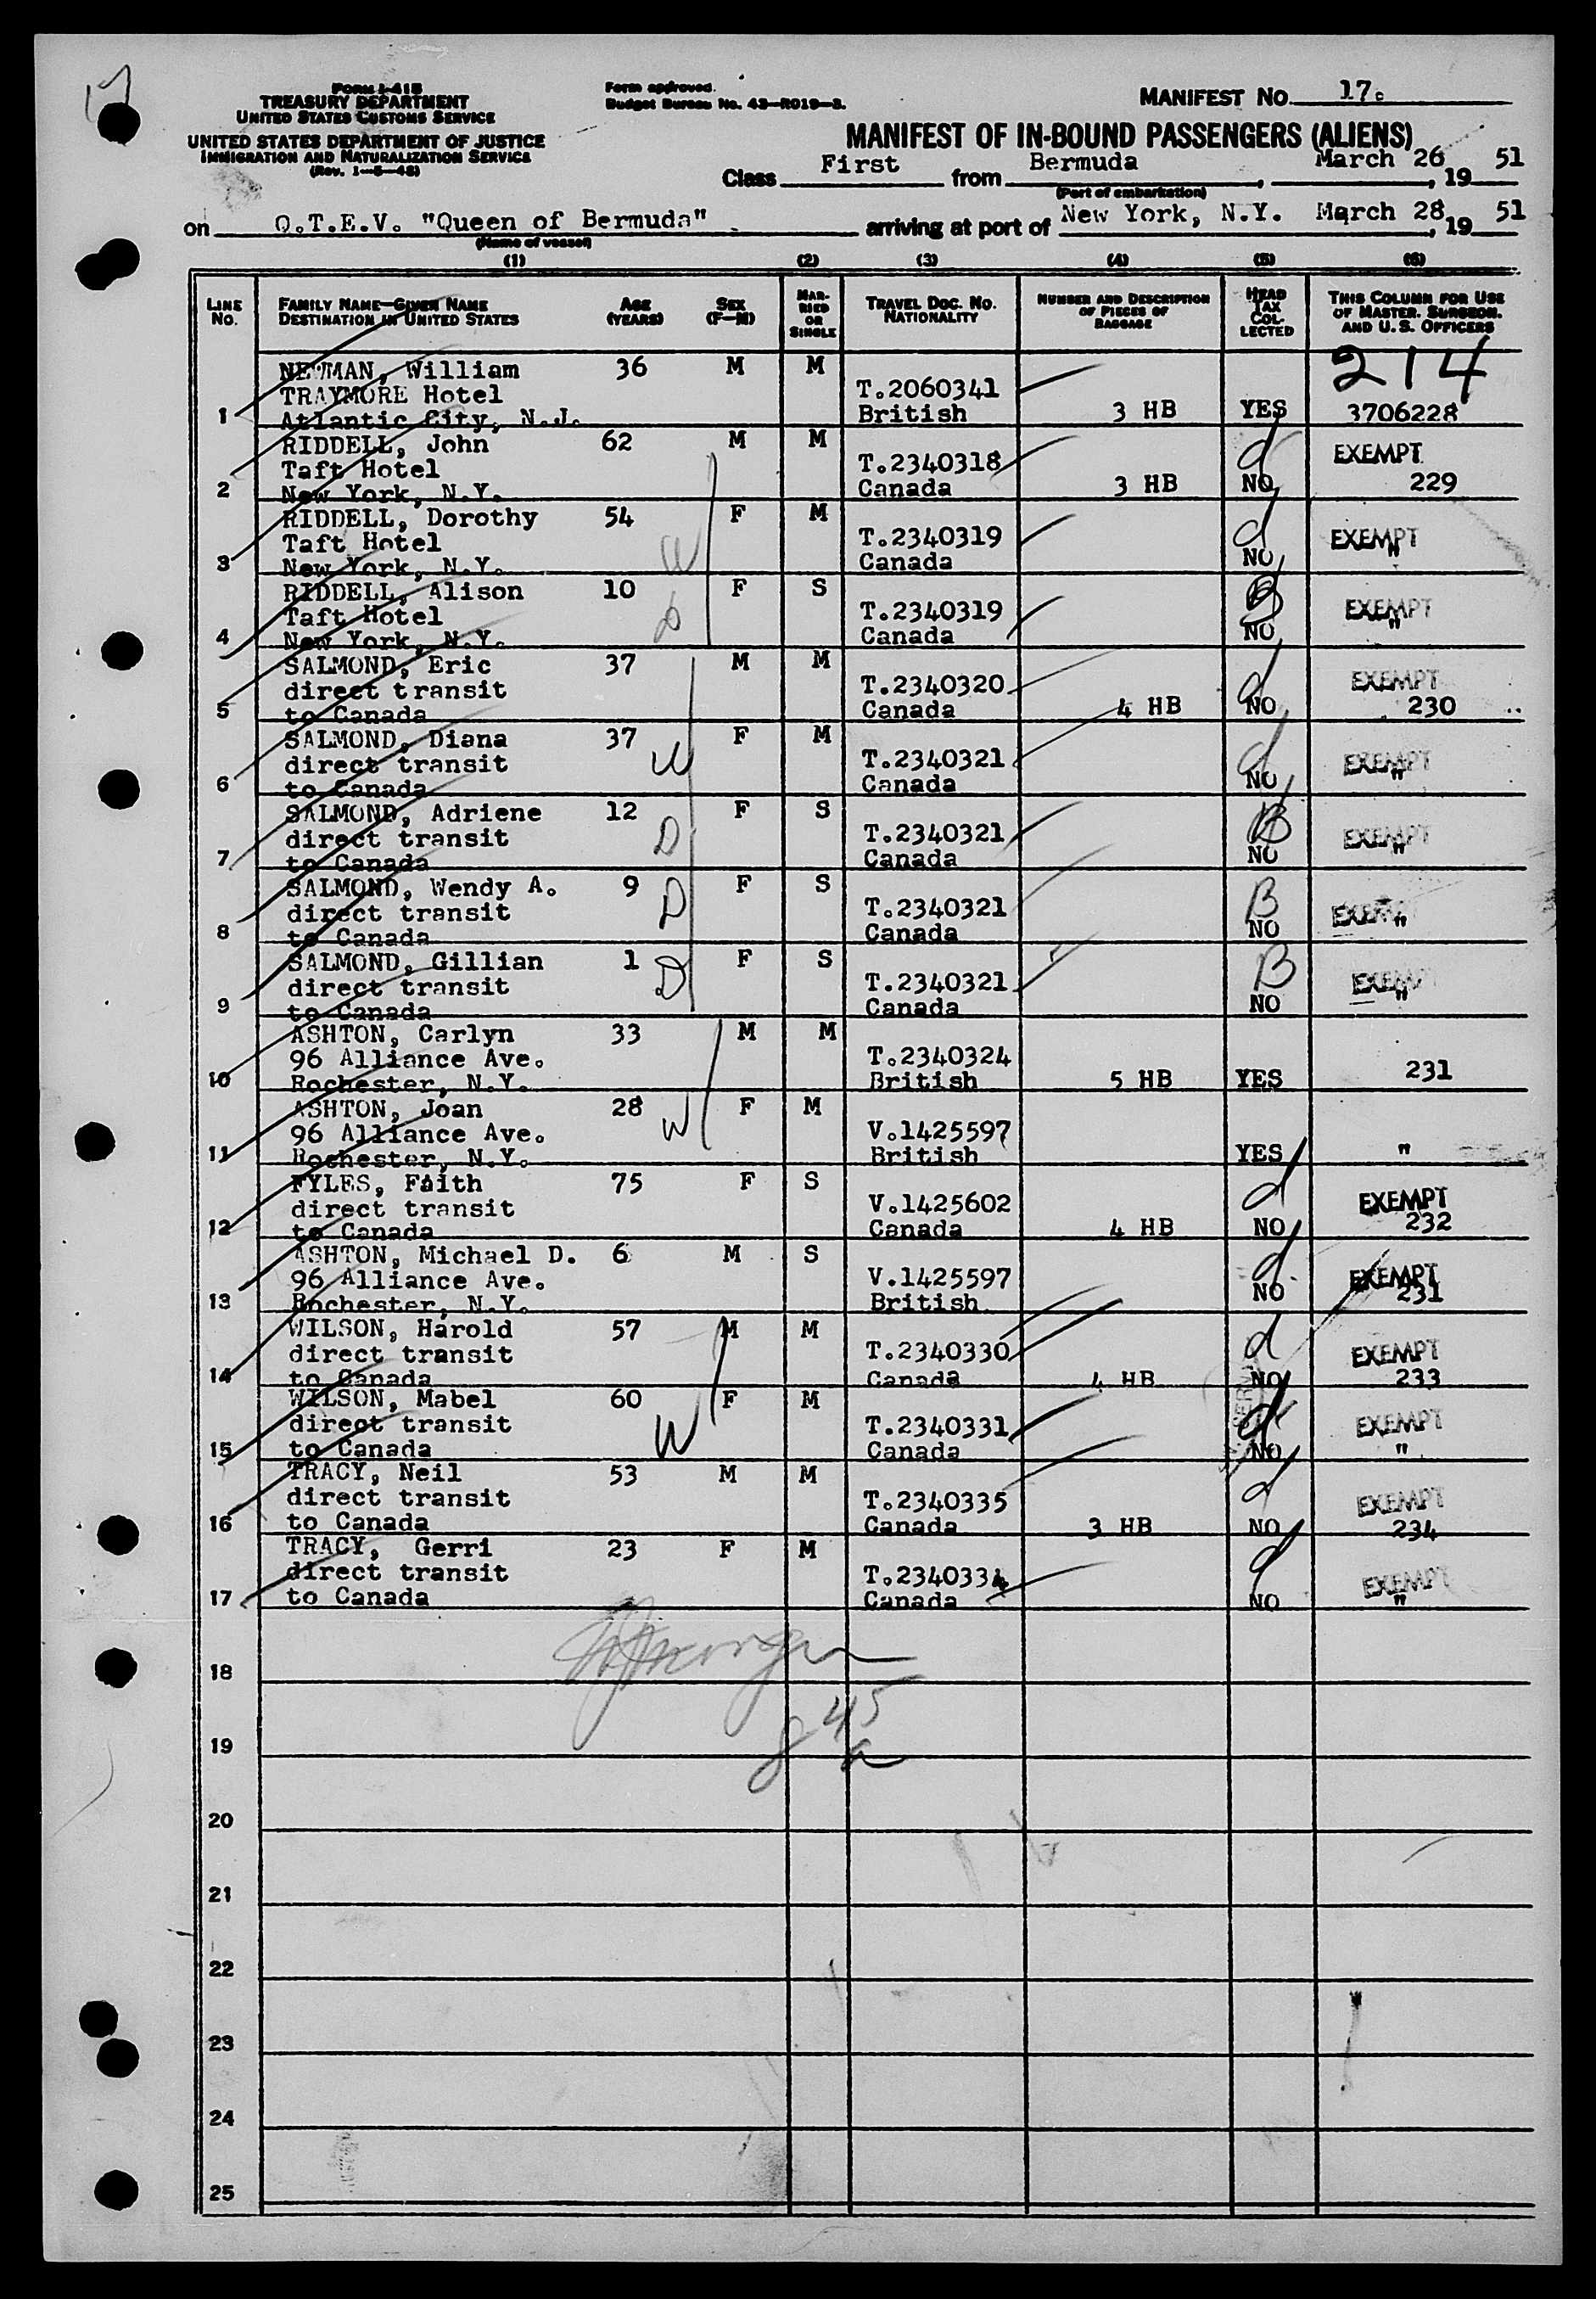 17
Form I-415
TREASURY DEPARTMENT
UNITED STATES CUSTOMS SERVICE
UNITED STATES DEPARTMENT OF JUSTICE
IMMIGRATION AND NATURALIZATION SERVICE
Form approved.
Budget Bureau No. 43-R019-3.
MANIFEST NO. 17.
MANIFEST OF IN-BOUND PASSENGERS (ALIENS)
Class First from Bermuda, March 26, 19 51
(Port of embarkation)
on Q.T.E.V. "Queen of Bermuda" arriving at port of New York, N.Y. March 28, 19 51
(Name of vessel)
(1) (2) (3) (4) (5) (6)
LINE NO. FAMILY NAME—GIVEN NAME DESTINATION IN UNITED STATES AGE (YEARS) SEX (F-M) MARRIED OR SINGLE TRAVEL DOC. NO. NATIONALITY NUMBER AND DESCRIPTION OF PIECES OF BAGGAGE HEAD TAX COLLECTED THIS COLUMN FOR USE OF MASTER, SURGEON, AND U. S. OFFICERS
NEWMAN, William 36 M M 214
TRAYMORE Hotel T.2060341
1 Atlantic City, N.J. British 3 HB YES 3706228
RIDDELL, John 62 M M d EXEMPT
Taft Hotel T.2340318
2 New York, N.Y. Canada 3 HB NO 229
RIDDELL, Dorothy 54 F M d
Taft Hotel W T.2340319 EXEMPT
3 New York, N.Y. Canada NO "
RIDDELL, Alison 10 F S B
Taft Hotel D T.2340319 EXEMPT
4 New York, N.Y. Canada NO "
SALMOND, Eric 37 M M d EXEMPT
direct transit T.2340320
5 to Canada Canada 4 HB NO 230
SALMOND, Diana 37 W F M d
direct transit T.2340321 EXEMPT
6 to Canada Canada NO "
SALMOND, Adriene 12 F S B
direct transit D T.2340321 EXEMPT
7 to Canada Canada NO "
SALMOND, Wendy A. 9 F S B
direct transit D T.2340321 EXEMPT
8 to Canada Canada NO "
SALMOND, Gillian 1 F S B
direct transit D T.2340321 EXEMPT
9 to Canada Canada NO "
ASHTON, Carlyn 33 M M
96 Alliance Ave. T.2340324
10 Rochester, N.Y. British 5 HB YES 231
ASHTON, Joan 28 F M
96 Alliance Ave. W V.1425597
11 Rochester, N.Y. British YES "
FYLES, Faith 75 F S d EXEMPT
direct transit V.1425602
12 to Canada Canada 4 HB NO 232
ASHTON, Michael D. 6 M S d
96 Alliance Ave. V.1425597 EXEMPT
13 Rochester, N.Y. British NO 231
WILSON, Harold 57 M M d
direct transit T.2340330 EXEMPT
14 to Canada Canada 4 HB NO 233
WILSON, Mabel 60 F M d
direct transit W T.2340331 EXEMPT
15 to Canada Canada NO "
TRACY, Neil 53 M M d
direct transit T.2340335 EXEMPT
16 to Canada Canada 3 HB NO 234
TRACY, Gerri 23 F M d
direct transit T.2340334 EXEMPT
17 to Canada Canada NO "
18
845
19 a
20
21
22
23
24
25